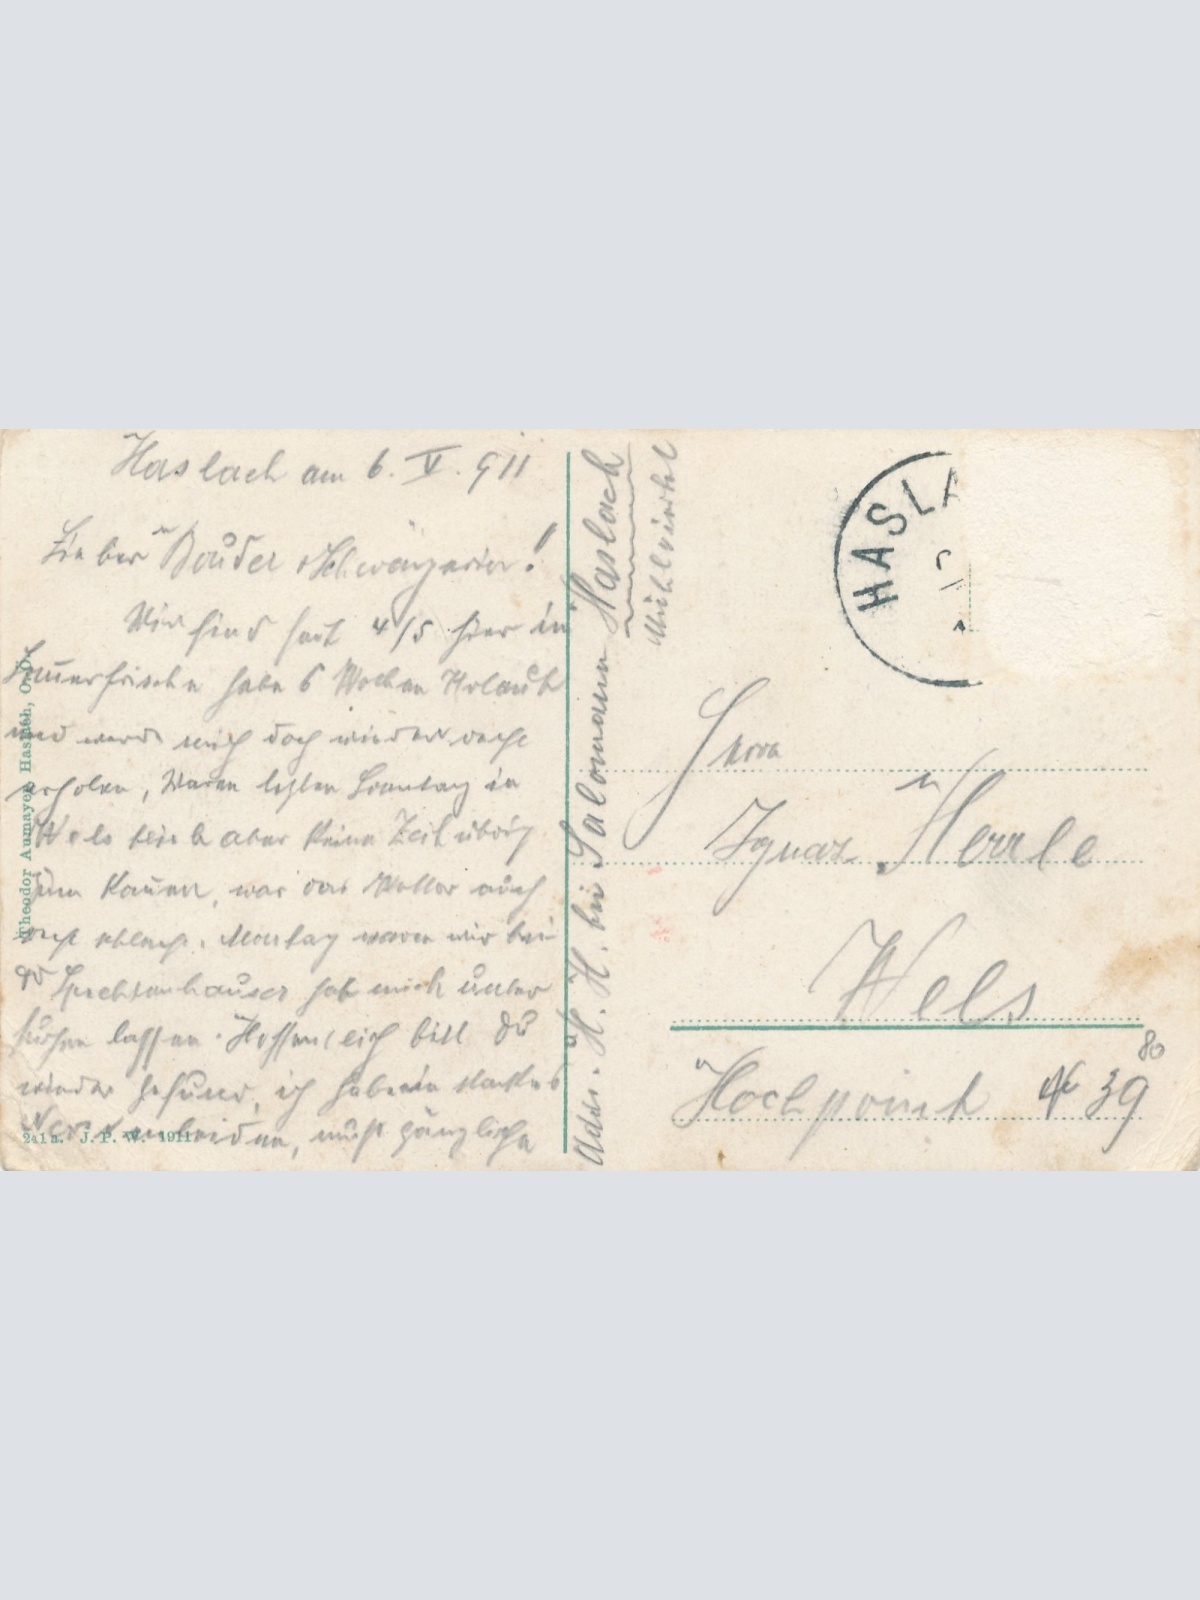 Haslach am 6. V. 911
Lieber Bruder Schwägerin!
Wir sind seit 4/5 hier in
Sommerfrische habe 6 Wochen Urlaub
und werde mich doch wieder recht
erholen, Waren letzten Sonntag in
Wels blieb aber keine Zeit übrig
zum kommen, war das Wetter auch
recht schlecht. Montag waren wir bei
Spechtenhauser hab mich unter
suchen lassen. Hoffentlich bist du
wieder gesund, ich habe ein starkes
Nervenleiden, muß gänzliche
Theodor Aumayer, Haslach, O.-Ö.
J. P. W. 1911
Addr. H. H. bei Salomann Haslach
Mühlviertel
HASLA
Herrn
Ignaz Herrle
Wels
Hochpoint № 39
80